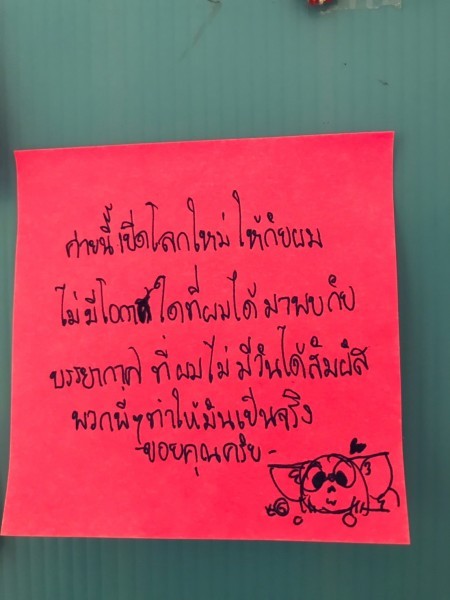 ค่ายนี้ เปิดโลกใหม่ ให้กับผม
ไม่มีโอกาสใดที่ผมได้ มาพบกับ
บรรยากาศ ที่ผมไม่ มีวันได้สัมผัส
พวกพี่ๆทำให้มันเป็นจริง
-ขอบคุณครับ-